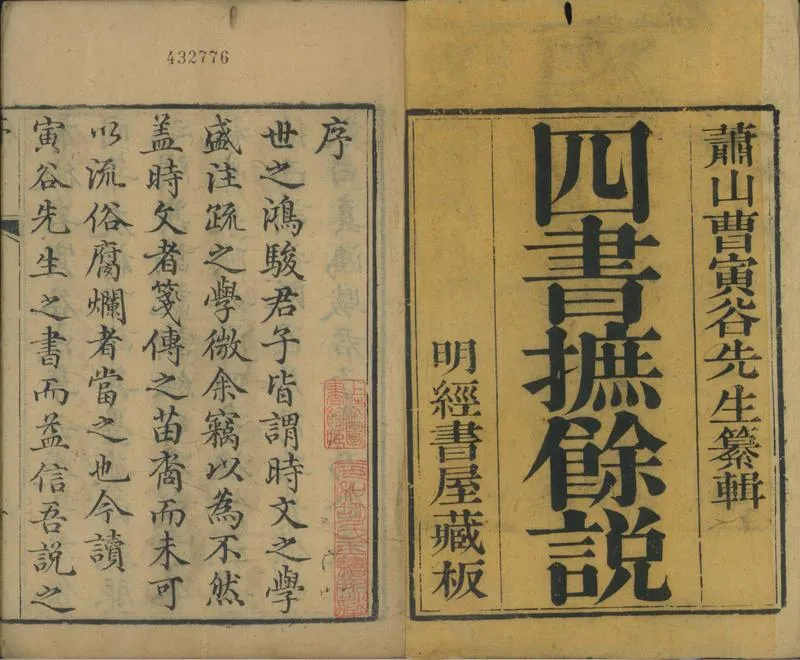 蕭山曹寅谷先生纂輯
四書摭餘説
明經書屋藏板
432776
序
世之鴻駿君子皆謂時文之學
盛注疏之學微余竊以為不然
蓋時文者箋傳之苗裔而未可
以流俗腐爛者當之也今讀
寅谷先生之書而益信吾説之